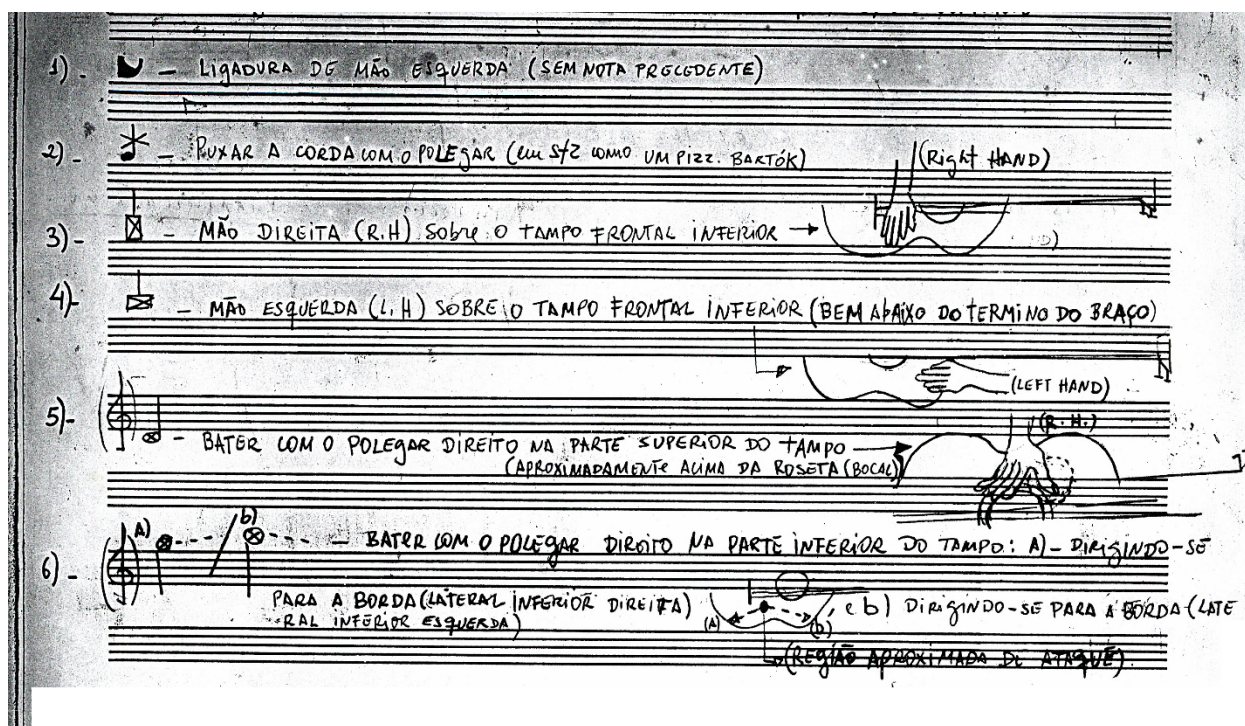 1) - LIGADURA DE MÃO ESQUERDA (SEM NOTA PRECEDENTE)
2) - PUXAR A CORDA COM O POLEGAR (em sfz COMO UM PIZZ. BARTÓK)
(Right HAND)
3) - MÃO DIREITA (R.H) Sobre O TAMPO FRONTAL INFERIOR
4) - MÃO ESQUERDA (L.H) SOBRE O TAMPO FRONTAL INFERIOR (BEM ABAIXO DO TERMINO DO BRAÇO)
(LEFT HAND)
5) - BATER COM O POLEGAR DIREITO NA PARTE SUPERIOR DO TAMPO
(R.H.)
(APROXIMADAMENTE ACIMA DA ROSETA (BOCAL)
6) - A) b) - BATER COM O POLEGAR DIREITO NA PARTE INFERIOR DO TAMPO: A) - DIRIGINDO-SE
PARA A BORDA (LATERAL INFERIOR DIREITA) , e b) DIRIGINDO-SE PARA A BORDA (LATE
RAL INFERIOR ESQUERDA)
(A) (b)
(REGIÃO APROXIMADA DE ATAQUE)